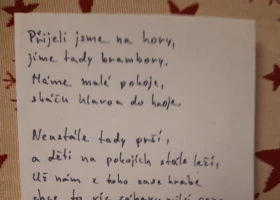 Přijeli jsme na hory,
jíme tady brambory.
Máme malé pokoje,
skáču hlavou do hnoje.
Neustále tady prší,
a děti na pokojích stále leží,
Už nám z toho zase hrabe
chce to víc zábavy